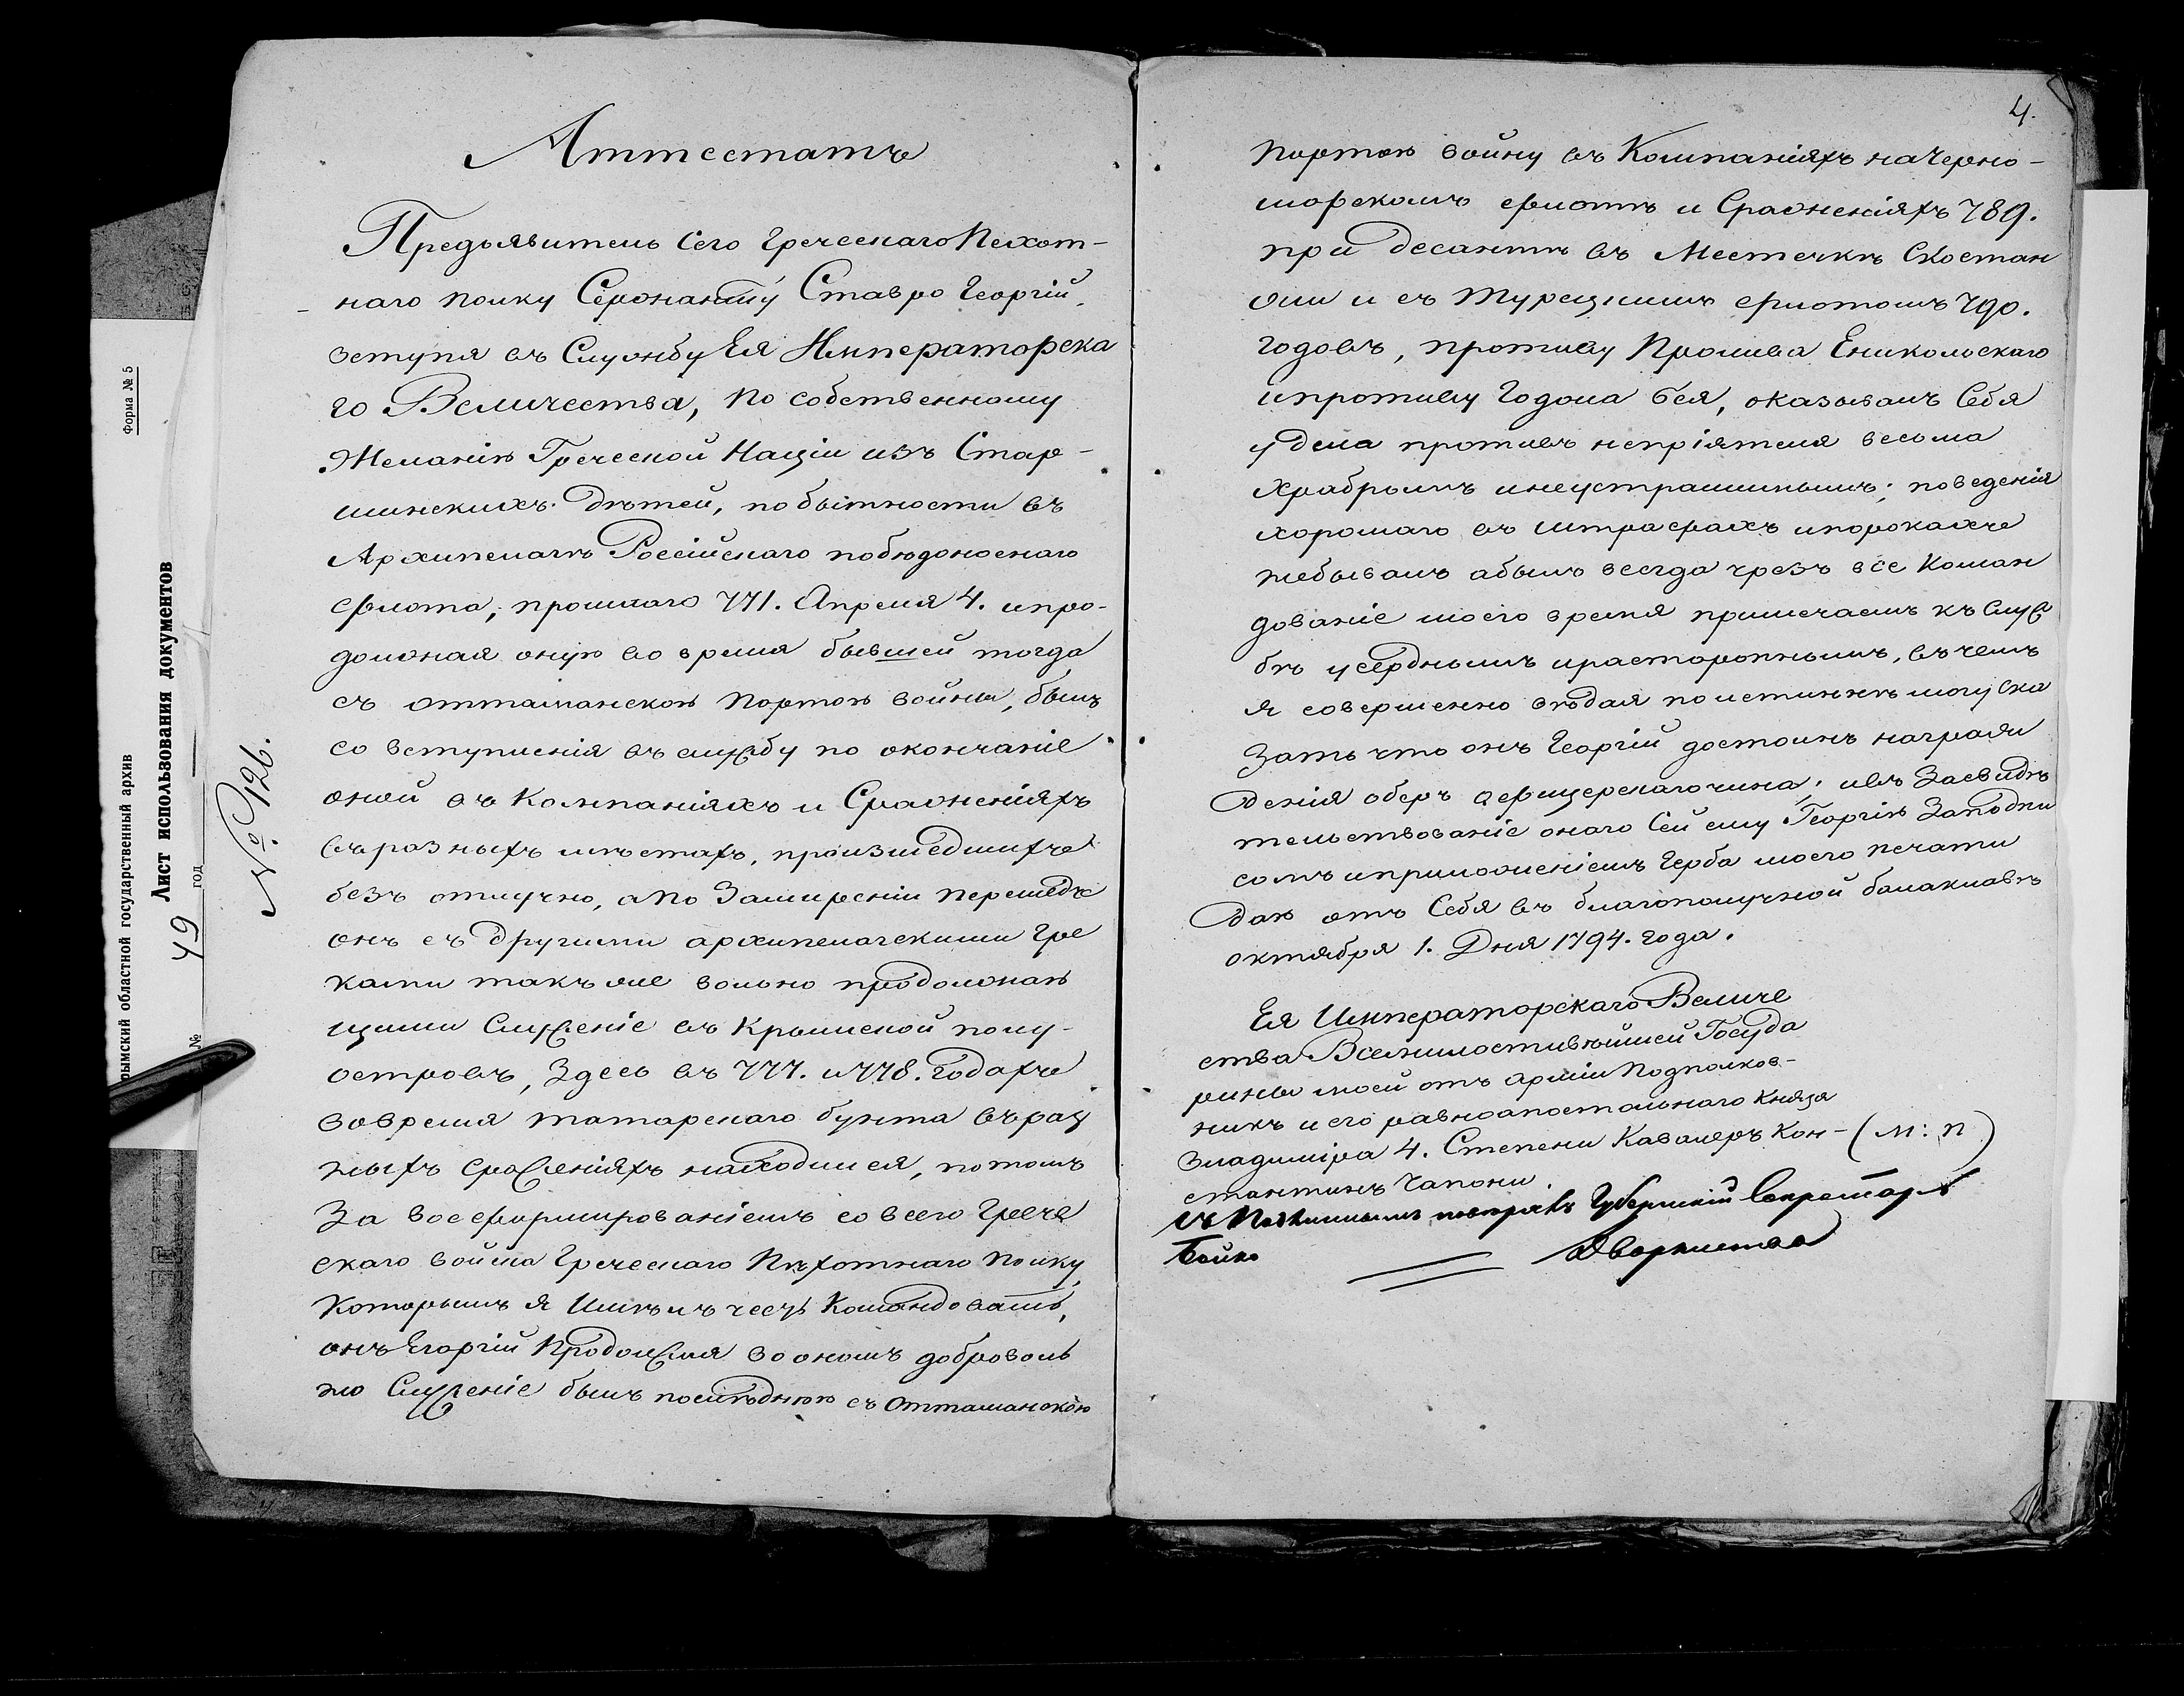 Форма № 5
рымский областной государственный архив
Лист использования документов
49
год
№
№ 126.
Аттестатъ
Предъявитель сего греческаго Пехот-
наго полку Сержанту Ставро Георгій,
вступя въ Службу Ея Императорска
го Величества, по собственному
Желанію Греческой Націи изъ Стар-
шинскихъ Дѣтей, по бытности въ
Архипелагѣ Россійскаго побѣдоноснаго
флота, прошлаго 771. Апреля 4. и про-
должая оную во время бывшей тогда
съ оттаманскою Портою войны, былъ
со вступленія въ службу по окончаніе
оной въ Компаніяхъ и Сраженіяхъ
въ разныхъ мѣстахъ, произшедшихъ
безъ отлучно, а по Замиреніи перешедъ
онъ съ другими архипелагскими Гре
ками такъ же вольно продолжаю
щими Служеніе въ Крымской полу-
островъ, Здесь въ 777. и 778. Годахъ
вовремя татарскаго бунта въ раз
ныхъ сраженіяхъ находился, потомъ
За восформированіемъ со всего Грече
скаго войска Греческаго Пѣхотнаго Полку
Которымъ я Имѣлъ честь Командовать,
онъ Егоргій Продолжая во ономъ доброволь
но Служеніе былъ послѣднюю съ Оттаманскою
4.
Портою войну въ Компаніяхъ на Черно-
морскомъ флотѣ и Сраженіяхъ 789.
при десантѣ въ Местечкѣ Скостан
жи и съ турецкимъ флотомъ 790.
годовъ, противу Пролива Еникольскаго
и противу Годжа бея, оказывалъ Себя
у дела противъ непріятеля весьма
храбрымъ и неустрашимымъ; поведенія
хорошаго въ штрафахъ и порокахъ
небывалъ а былъ всегда чрезъ все Коман
дованіе моего время примечаемъ къ Служ
бѣ усерднымъ и расторопнымъ, въ чемъ
я совершенно вѣдая по истиннѣ могу ска
зать что онъ Георгій достоинъ награж
денія оберъ афицерскаго чина; и въ Засвидѣ
тельствованіе онаго Сей ему Георгію За подпи
сомъ и приложеніемъ Герба моего печати
данъ отъ Себя въ благополучной балаклавѣ
октября 1. Дня 1794. года.
Ея Императорскаго Величе
ства Всемилостивѣйшей Госуда
рини моей отъ арміи Подполков-
никъ и его равноапостольнаго Князя
Владиміра 4. Степени Кавалеръ Кон- (М: П)
стантинъ Чапони.
Съ Подлиннымъ повѣрялъ Губернскій Секретарь
Бойко
Дворянства